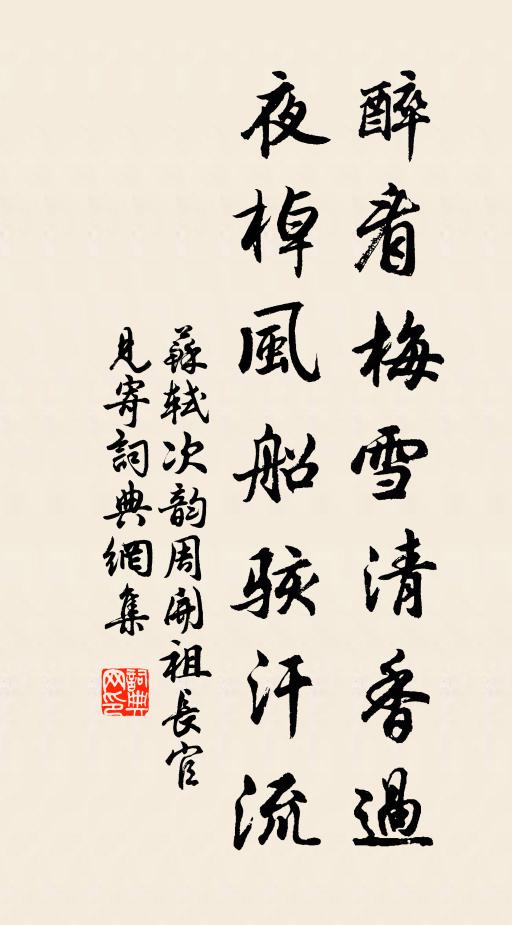 醉看梅雪清香過
夜棹風船駭汗流
蘇軾次韵周開祖長官
見寄詞典網集
詞典網印